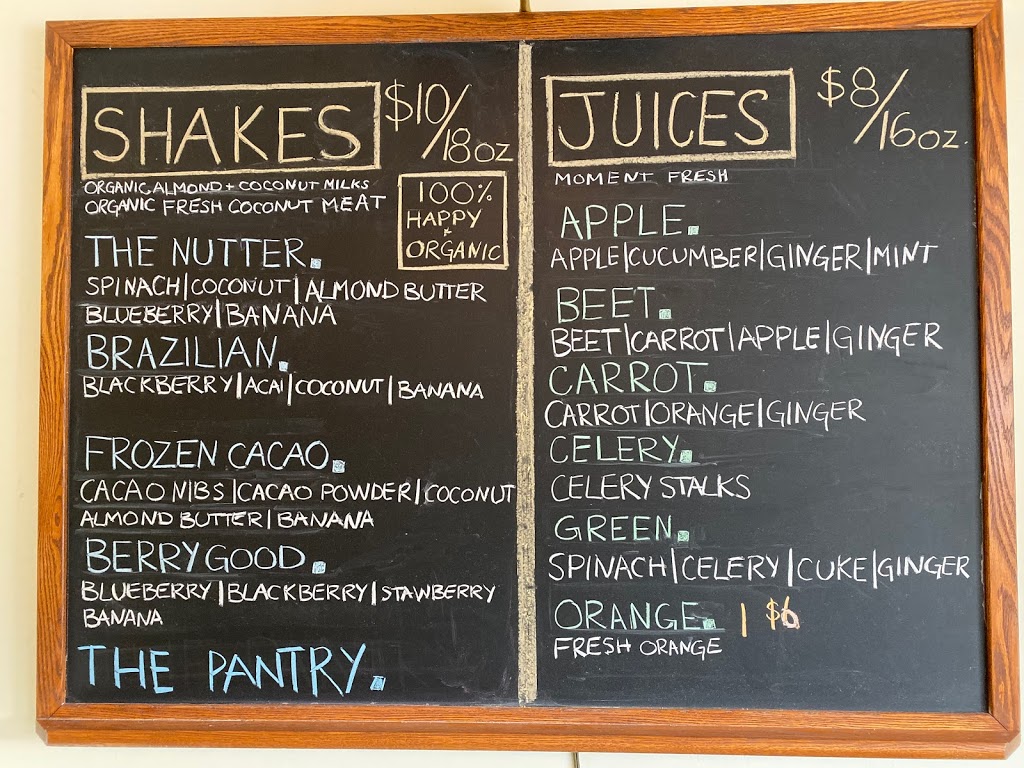 SHAKES $10/18oz
ORGANIC ALMOND + COCONUT MILKS
ORGANIC FRESH COCONUT MEAT
100%
HAPPY
+
ORGANIC
THE NUTTER.
SPINACH|COCONUT|ALMOND BUTTER
BLUEBERRY|BANANA
BRAZILIAN.
BLACKBERRY|ACAI|COCONUT|BANANA
FROZEN CACAO.
CACAO NIBS|CACAO POWDER|COCONUT
ALMOND BUTTER|BANANA
BERRY GOOD.
BLUEBERRY|BLACKBERRY|STAWBERRY
BANANA
THE PANTRY.
JUICES $8/16oz.
MOMENT FRESH
APPLE.
APPLE|CUCUMBER|GINGER|MINT
BEET.
BEET|CARROT|APPLE|GINGER
CARROT.
CARROT|ORANGE|GINGER
CELERY.
CELERY STALKS
GREEN.
SPINACH|CELERY|CUKE|GINGER
ORANGE. | $6
FRESH ORANGE